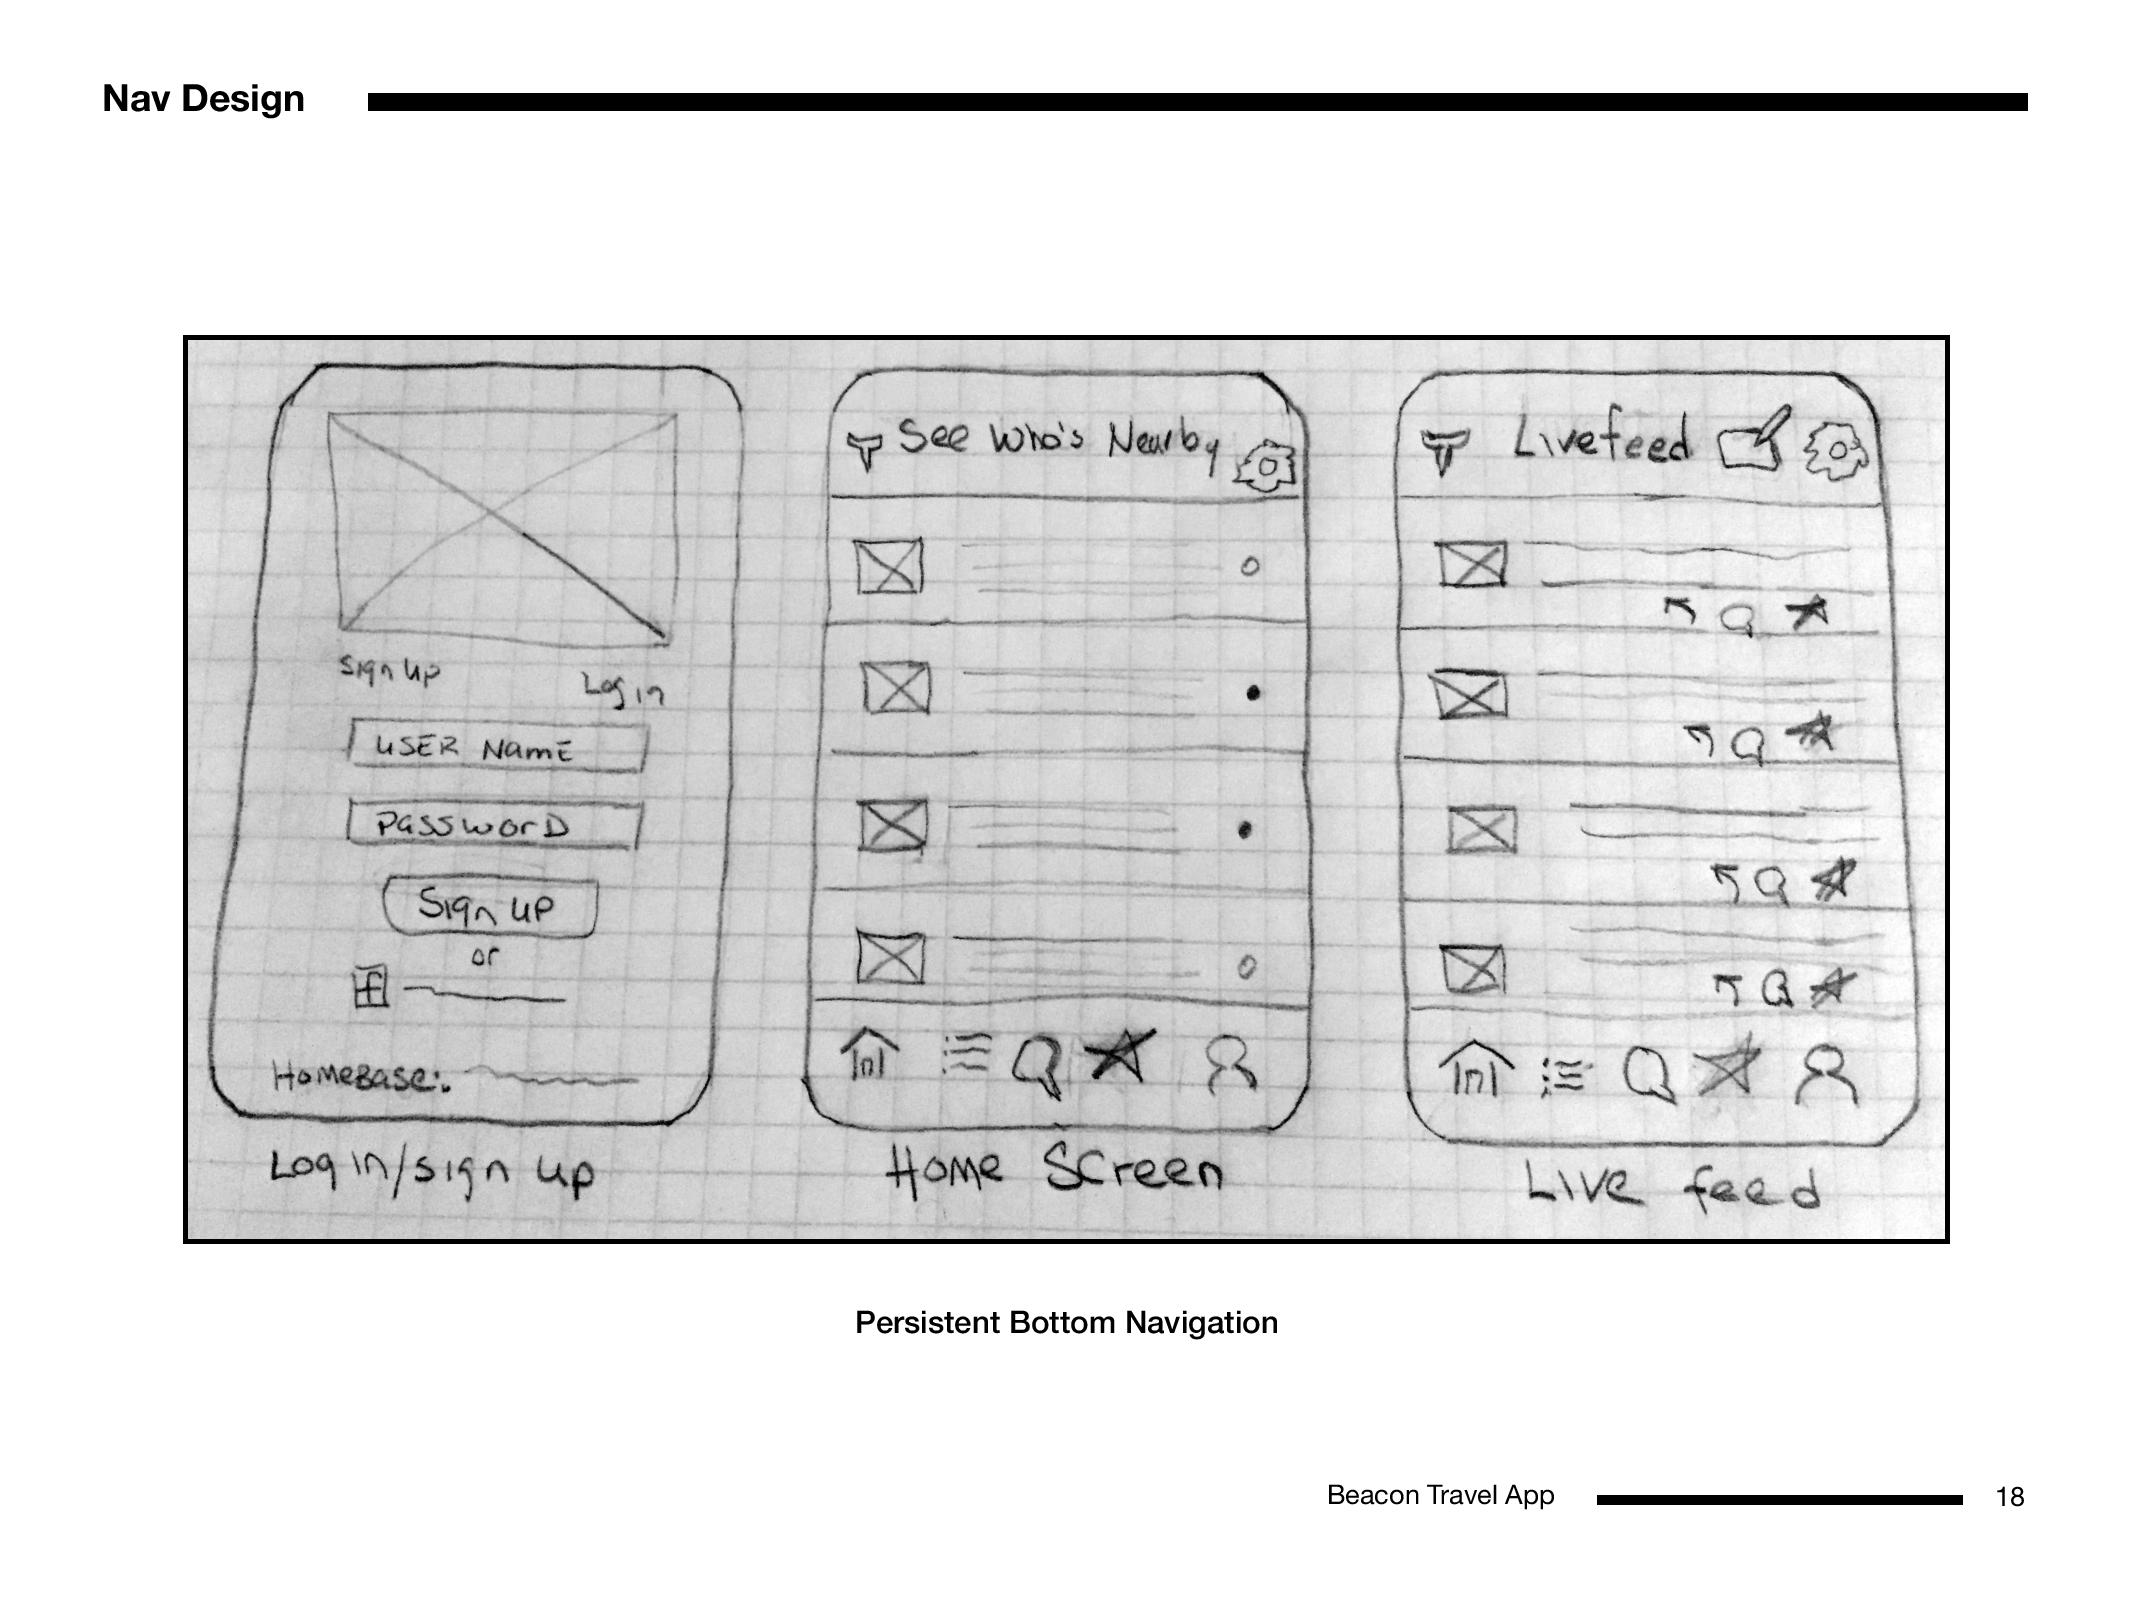 Nav Design
Sign Up
Log in
USER Name
PassworD
Sign UP
or
f
HomeBase:
Log in/sign up
See Who's Nearby
Home Screen
Livefeed
Live feed
Persistent Bottom Navigation
Beacon Travel App
18